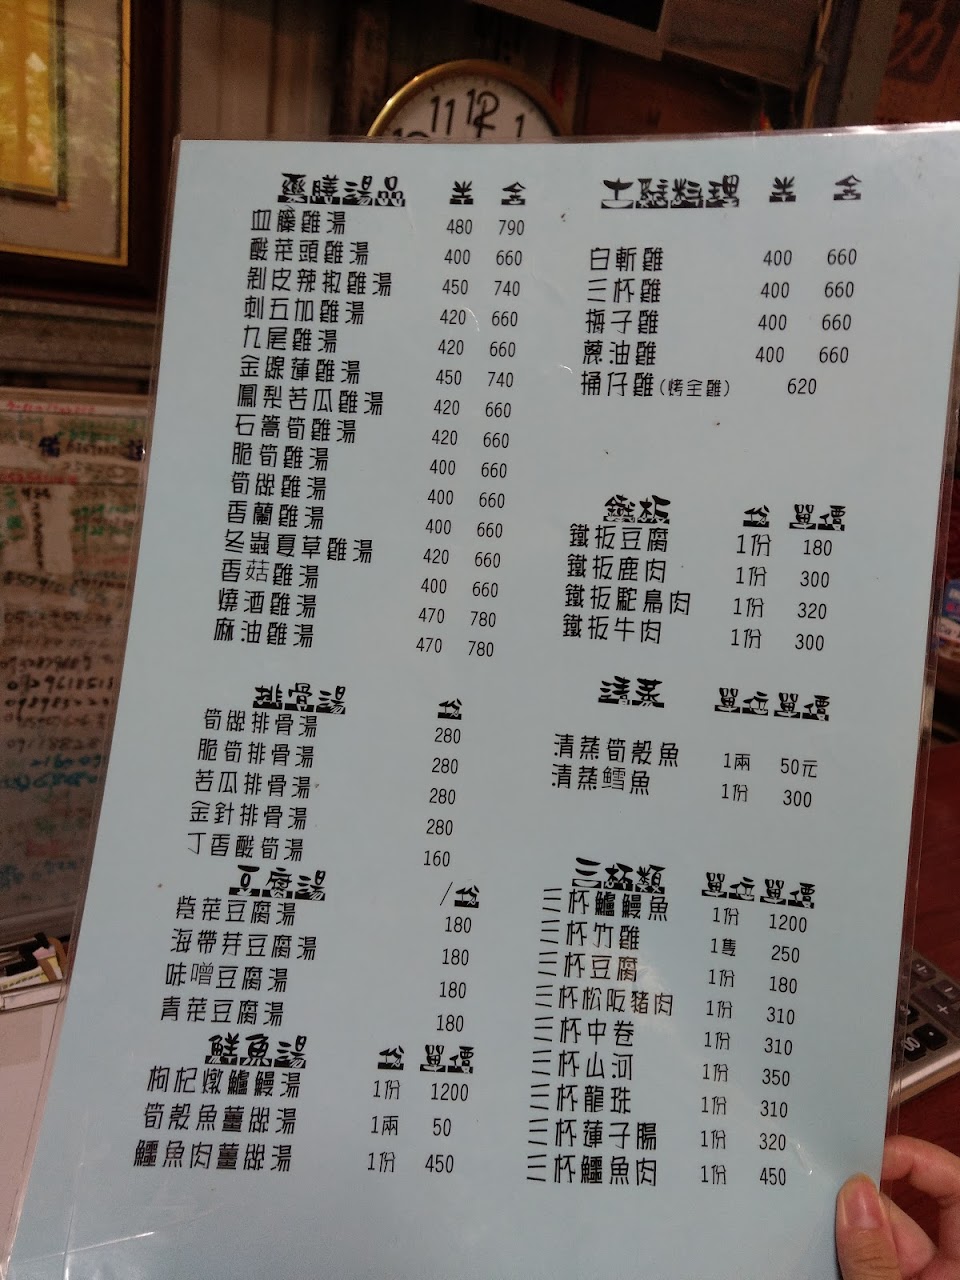 藥膳湯品 半 全
血藤雞湯 480 790
酸菜頭雞湯 400 660
剝皮辣椒雞湯 450 740
刺五加雞湯 420 660
九尾雞湯 420 660
金線蓮雞湯 450 740
鳳梨苦瓜雞湯 420 660
石篙筍雞湯 420 660
脆筍雞湯 400 660
筍絲雞湯 400 660
香蘭雞湯 400 660
冬蟲夏草雞湯 420 660
香菇雞湯 400 660
燒酒雞湯 470 780
麻油雞湯 470 780
排骨湯 份
筍絲排骨湯 280
脆筍排骨湯 280
苦瓜排骨湯 280
金針排骨湯 280
丁香酸筍湯 160
豆腐湯 /份
紫菜豆腐湯 180
海帶芽豆腐湯 180
味噌豆腐湯 180
青菜豆腐湯 180
鮮魚湯 份 單價
枸杞燉鱸鰻湯 1份 1200
筍殼魚薑絲湯 1兩 50
鱷魚肉薑絲湯 1份 450
土雞料理 半 全
白斬雞 400 660
三杯雞 400 660
梅子雞 400 660
蔥油雞 400 660
桶仔雞(烤全雞) 620
鐵板 份 單價
鐵板豆腐 1份 180
鐵板鹿肉 1份 300
鐵板駝鳥肉 1份 320
鐵板牛肉 1份 300
清蒸 單位 單價
清蒸筍殼魚 1兩 50元
清蒸鱈魚 1份 300
三杯類 單位 單價
三杯鱸鰻魚 1份 1200
三杯竹雞 1隻 250
三杯豆腐 1份 180
三杯松阪豬肉 1份 310
三杯中卷 1份 310
三杯山河 1份 350
三杯龍珠 1份 310
三杯蓮子腸 1份 320
三杯鱷魚肉 1份 450